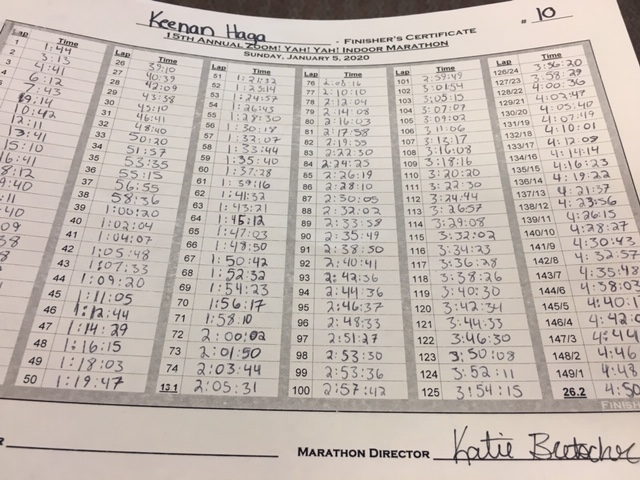 Keenan Haga - FINISHER'S CERTIFICATE # 10
15TH ANNUAL ZOOM! YAH! YAH! INDOOR MARATHON
SUNDAY, JANUARY 5, 2020
Lap Time Lap Time Lap Time Lap Time Lap Time Lap Time
1 1:44 26 39:10 51 1:21:32 76 2:08:16 101 2:59:49 126/24 3:56:20
2 3:13 27 40:39 52 1:23:14 77 2:10:10 102 3:01:54 127/23 3:58:29
3 4:41 28 42:09 53 1:24:57 78 2:12:04 103 3:05:15 128/22 4:00:36
4 6:12 29 43:38 54 1:26:43 79 2:14:08 104 3:07:07 129/21 4:03:47
7:43 30 45:10 55 1:28:30 80 2:16:03 105 3:09:02 130/20 4:05:40
9:14 31 46:41 56 1:30:18 81 2:17:58 106 3:11:06 131/19 4:07:49
10:42 32 48:40 57 1:32:07 82 2:19:55 107 3:13:17 132/18 4:10:01
12:11 33 50:20 58 1:33:44 83 2:22:30 108 3:16:08 133/17 4:12:09
13:41 34 51:57 59 1:35:40 84 2:24:25 109 3:18:16 134/16 4:14:14
15:10 35 53:35 60 1:37:28 85 2:26:19 110 3:20:20 135/15 4:16:23
16:41 36 55:15 61 1:39:16 86 2:28:10 111 3:22:30 136/14 4:19:22
8:12 37 56:55 62 1:41:32 87 2:30:05 112 3:24:44 137/13 4:21:37
9:40 38 58:36 63 1:43:21 88 2:32:02 113 3:26:57 138/12 4:23:56
:11 39 1:00:20 64 1:45:12 89 2:33:58 114 3:29:08 139/11 4:26:15
:40 40 1:02:04 65 1:47:03 90 2:35:49 115 3:32:02 140/10 4:28:27
:09 41 1:04:07 66 1:48:50 91 2:38:50 116 3:34:23 141/9 4:30:43
38 42 1:05:48 67 1:50:42 92 2:40:41 117 3:36:28 142/8 4:32:57
43 1:07:33 68 1:52:32 93 2:42:36 118 3:38:26 143/7 4:35:48
44 1:09:20 69 1:54:23 94 2:44:36 119 3:40:30 144/6 4:38:03
45 1:11:05 70 1:56:17 95 2:46:37 120 3:42:34 145/5 4:40:1
46 1:12:44 71 1:58:10 96 2:48:33 121 3:44:33 146/4 4:42:0
47 1:14:29 72 2:00:02 97 2:51:27 122 3:46:30 147/3 4:44
48 1:16:15 73 2:01:50 98 2:53:30 123 3:50:08 148/2 4:46
49 1:18:03 74 2:03:44 99 2:53:36 124 3:52:11 149/1 4:48
50 1:19:47 13.1 2:05:31 100 2:57:42 125 3:54:15 26.2 4:50
FINISH
MARATHON DIRECTOR Katie